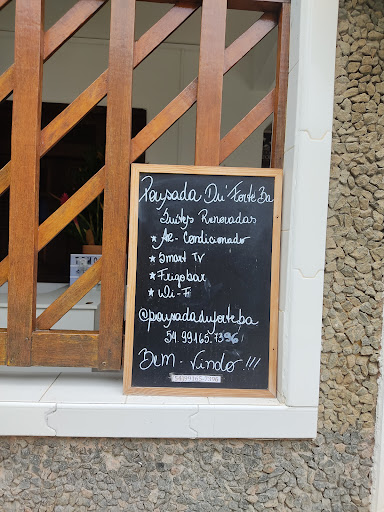 Pousada Du' Forte Ba
Suítes Renovadas
* Ar-Condicionado
* Smart TV
* Frigobar
* Wi-Fi
@pousadaduforte.ba
54.99165.7396
Bem-Vindo!!!